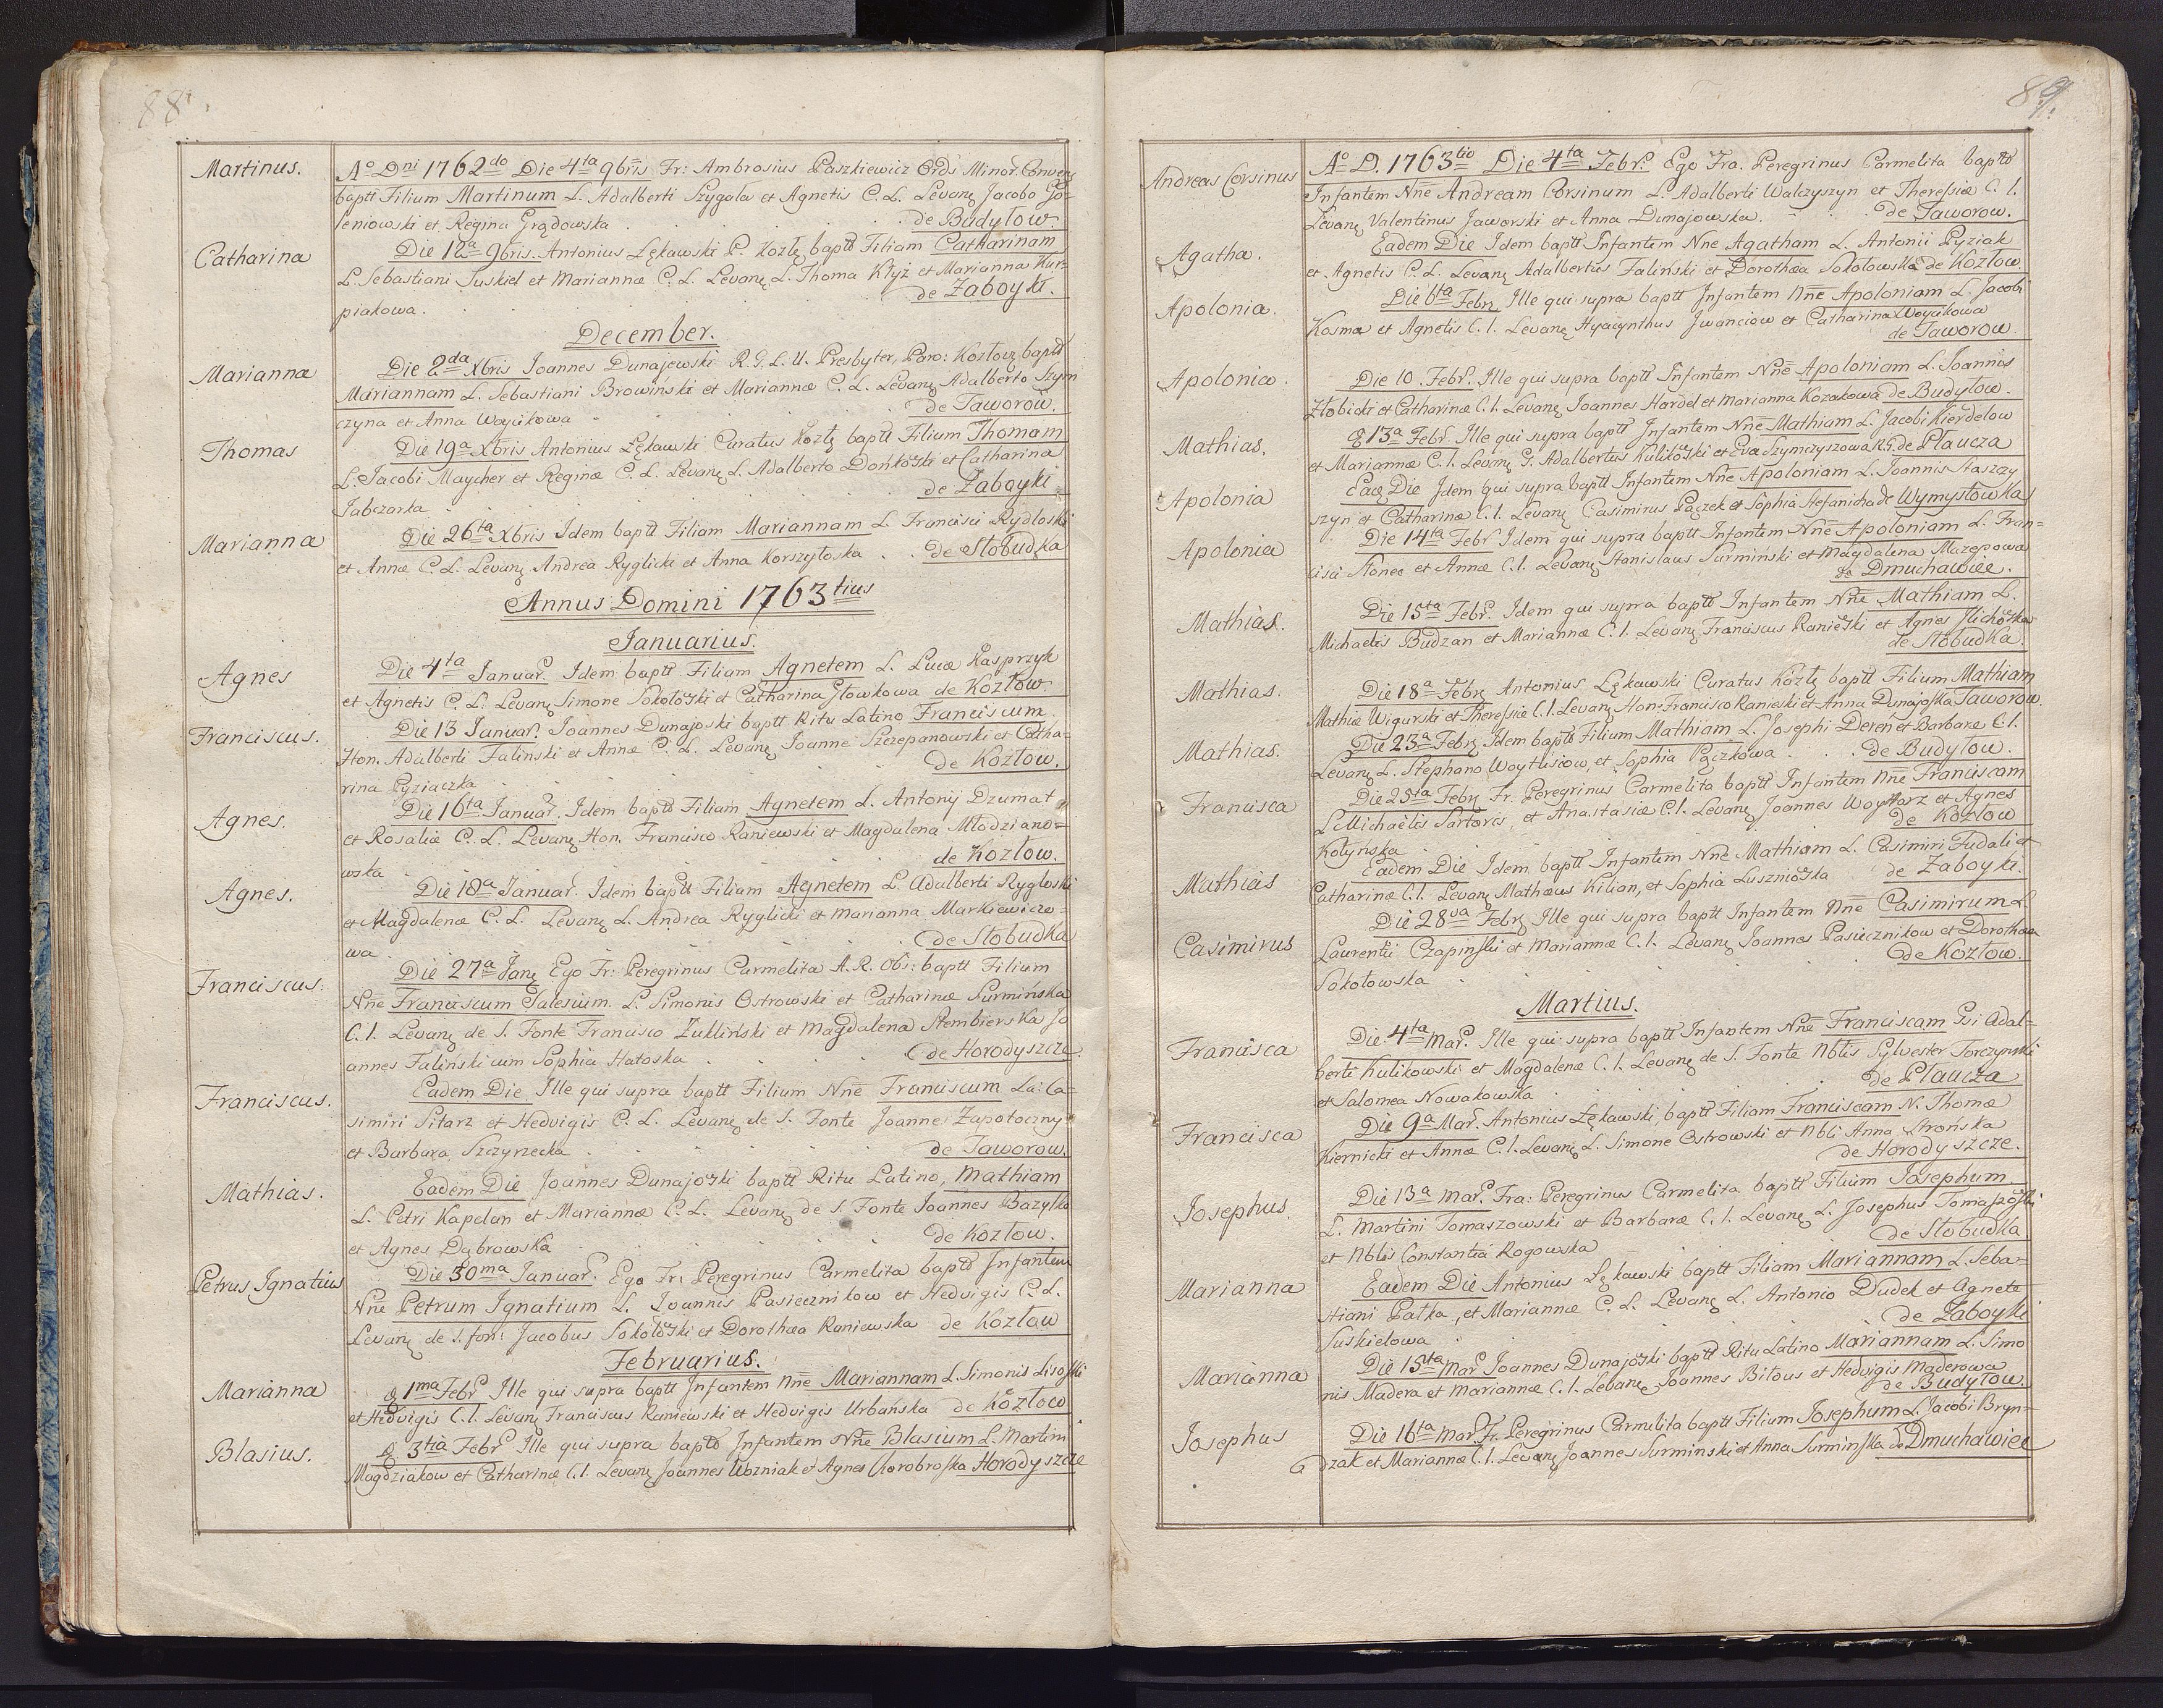 88.
Martinus.
Aº Dni 1762do Die 4ta 9bris Fr: Ambrosius Paszkiewicz Ords Minor. Conven
baptt Filium Martinum L. Adalberti Szygala et Agnetis C. L. Levanę Jacobo Go-
leniowski et Regina Grądowska . de Budyłow.
Catharina
Die 12a 9bris. Antonius Łękawski P. Kozłę baptt Filiam Catharinam
L. Sebastiani Suskiel et Mariannæ C. L. Levanę L. Thoma Kłyż et Marianna Kur-
piakowa. de Zaboyki.
December.
Marianna
Die 2da Xbris Joannes Dunajewski R. G. L. U. Presbyter, Paro: Kozłow baptt
Mariannam L. Sebastiani Browinski et Mariannæ C. L. Levanę Adalberto Szym
czyna et Anna Woycikowa de Taworow.
Thomas
Die 19a Xbris Antonius Łękawski Curatus Kozłę baptt Filium Thomam
L. Jacobi Maycher et Reginæ C. L. Levanę L. Adalberto Dońkoski et Catharina
Jabczarka de Zaboyki
Marianna
Die 26ta Xbris Idem baptt Filiam Mariannam L. Francisci Rydloski
et Annæ C. L. Levanę Andrea Ryglicki et Anna Korszyłoska . . de Słobudka
Annus Domini 1763tius
Januarius.
Agnes
Die 4ta Januar. Idem baptt Filiam Agnetem L. Lucæ Kasprzyk
et Agnetis C. L. Levanę Simone Sokołoski et Catharina Głowkowa de Kozłow.
Franciscus.
Die 13 Januar. Joannes Dunajoski baptt Ritu Latino Franciscum
Hon. Adalberti Falinski et Annæ C. L. Levanę Joanne Szczepanowski et Catha-
rina Pyziaczka de Kozłow.
Agnes.
Die 16ta Januar. Idem baptt Filiam Agnetem L. Antonij Dzumat
et Rosaliæ C. L. Levanę Hon. Francisco Raniewski et Magdalena Młodziano-
wska de Kozłow.
Agnes.
Die 18a Januar. Idem baptt Filiam Agnetem L. Adalberti Rygloski
et Magdalenæ C. L. Levanę L. Andrea Ryglicki et Marianna Markiewiczo-
wa de Słobudka
Franciscus.
Die 27a Janę Ego Fr: Peregrinus Carmelita A. R. Obs: baptt Filium
Nne Franciscum Salesium. L. Simonis Ostrowski et Catharinæ Surminska
C. l. Levanę de S. Fonte Francisco Zukliński et Magdalena Stembierska Jo
annes Faliński cum Sophia Hatoska . de Horodyszcze.
Franciscus.
Eadem Die Ille qui supra baptt Filium Nne Franciscum La: Ca-
simiri Sitarz et Hedvigis C. L. Levanę de S. Fonte Joanne Zapotoczny
et Barbara Szczyrzecka de Taworow.
Mathias.
Eadem Die Joannes Dunajoski baptt Ritu Latino, Mathiam
L. Petri Kapelan et Mariannæ C. L. Levanę de S. Fonte Joannes Bazylko
et Agnes Dąbrowska de Kozłow.
Petrus Ignatius
Die 30ma Januar. Ego Fr: Peregrinus Carmelita baptt Infantem
Nne Petrum Ignatium L. Joannis Pasiecznikow et Hedvigis C. L.
Levanę de S. fon: Jacobus Sokołoski et Dorothæa Raniewska de Kozłow
Februarius.
Marianna
D 1ma Febr. Ille qui supra baptt Infantem Nne Mariannam L. Simonis Lisoski
et Hedvigis C. l. Levanę Franciscus Raniewski et Hedvigis Urbańska de Kozłow
Blasius.
D 3tia Febr. Ille qui supra baptt Infantem Nne Blasium L. Martini
Magdziakow et Catharinæ C. l. Levanę Joannes Wozniak et Agnes Chorobroska Horodyszcze
89.
Andreas Corsinus
Aº D. 1763tio Die 4ta Febr. Ego Fra. Peregrinus Carmelita baptt
Infantem Nne Andream Corsinum L. Adalberti Walczyszyn et Theressiæ C. l.
Levanę Valentinus Jaworski et Anna Dunajowska. . de Taworow.
Agatha.
Eadem Die Idem baptt Infantem Nne Agatham L. Antonii Pyziak
et Agnetis C. L. Levanę Adalbertus Faliński et Dorothæa Sokołowska de Kozłow.
Apolonia.
Die 6ta Febrę Ille qui supra baptt Infantem Nne Apoloniam L. Jacobi
Kosmæ et Agnetis C. l. Levanę Hyacynthus Jwanciow et Catharina Woycikowa
de Taworow.
Apolonia.
Die 10. Febr. Ille qui supra baptt Infantem Nne Apoloniam L. Joannis
Złobicki et Catharinæ C. l. Levanę Joannes Hardel et Marianna Kozakowa de Budyłow.
Mathias.
D 13a Febr. Ille qui supra baptt Infantem Nne Mathiam L. Jacobi Kierdelow
et Mariannæ C. l. Levanę G. Adalbertus Kulikoski et Eva Szymczyszowa RG. de Płaucza
Apolonia
Eadę Die Idem qui supra baptt Infantem Nne Apoloniam L. Joannis Staszczy
szyn et Catharinæ C. l. Levanę Casimirus Pączek et Sophia Stefanicha de Wymysłowka
Apolonia
Die 14ta Febr Idem qui supra baptt Infantem Nne Apoloniam L. Fran-
cisci Słonec et Annæ C. l. Levanę Stanislaus Surmiński et Magdalena Mazepowa
de Dmuchawiec.
Mathias.
Die 15ta Febr. Idem qui supra baptt Infantem Nne Mathiam L.
Michaelis Budzan et Mariannæ C. l. Levanę Franciscus Ranieski et Agnes Ilichoska
de Słobudka.
Mathias.
Die 18a Febrę Antonius Łękawski Curatus Kozłę baptt Filium Mathiam
Mathiæ Wigurski et Theressiæ C. l. Levanę Hon: Francisco Ranieski et Anna Dunajoska Taworow.
Mathias.
Die 23a Febrę Idem baptt Filium Mathiam L. Josephi Dereń et Barbaræ C. l.
Levanę L. Stephano Woytisiow, et Sophia Pączkowa . de Budyłow.
Francisca
Die 25ta Febrę Fr. Peregrinus Carmelita baptt Infantem Nne Franciscam
L Michaëlis Sartoris, et Anastasiæ C. l. Levanę Joannes Woytarz et Agnes
Kotyńska de Kozłow
Mathias
Eadem Die Idem baptt Infantem Nne Mathiam L. Casimiri Fudali et
Catharinæ C. l. Levanę Mathæus Kilian, et Sophia Luszznioska de Zaboyki.
Casimirus
Die 28va Febrę Ille qui supra baptt Infantem Nne Casimirum L
Laurentii Czapinski et Mariannæ C. l. Levanę Joannes Pasiecznikow et Dorothæa
Sokołowska de Kozłow.
Martius.
Francisca
Die 4ta Mar. Ille qui supra baptt Infantem Nne Franciscam Gsi Adal-
berti Kulikowski et Magdalenæ C. l. Levanę de S. Fonte Nblis Sylvester Torczynski
et Salomea Nowakowska de Płaucza
Francisca
Die 9a Mar. Antonius Łękawski, baptt Filiam Franciscam N. Thomæ
Kiernicki et Annæ C. l. Levanę L. Simone Ostrowski et Nbli Anna Strońska
de Horodyszcze.
Josephus.
Die 13a Mar. Fra: Peregrinus Carmelita baptt Filium Josephum
L. Martini Tomaszowski et Barbaræ C. l. Levanę L. Josephus Tomaszoski
et Nblis Constantia Rogowska de Słobudka
Marianna
Eadem Die Antonius Łękawski baptt Filiam Mariannam L. Seba-
stiani Pałka, et Mariannæ C. L. Levanę L. Antonio Dudek et Agnete
Suskielowa de Zaboyki
Marianna
Die 15ta Mar Joannes Dunajoski baptt Ritu Latino Mariannam L. Simo
nis Madera et Mariannæ C. l. Levanę Joannes Bitous et Hedvigis Maderowa
de Budyłow
Josephus
Die 16ta Mar. Fr. Peregrinus Carmelita baptt Filium Josephum L. Jacobi Bryn-
dzak et Mariannæ C. l. Levanę Joannes Surminski et Anna Surminska de Dmuchawiec